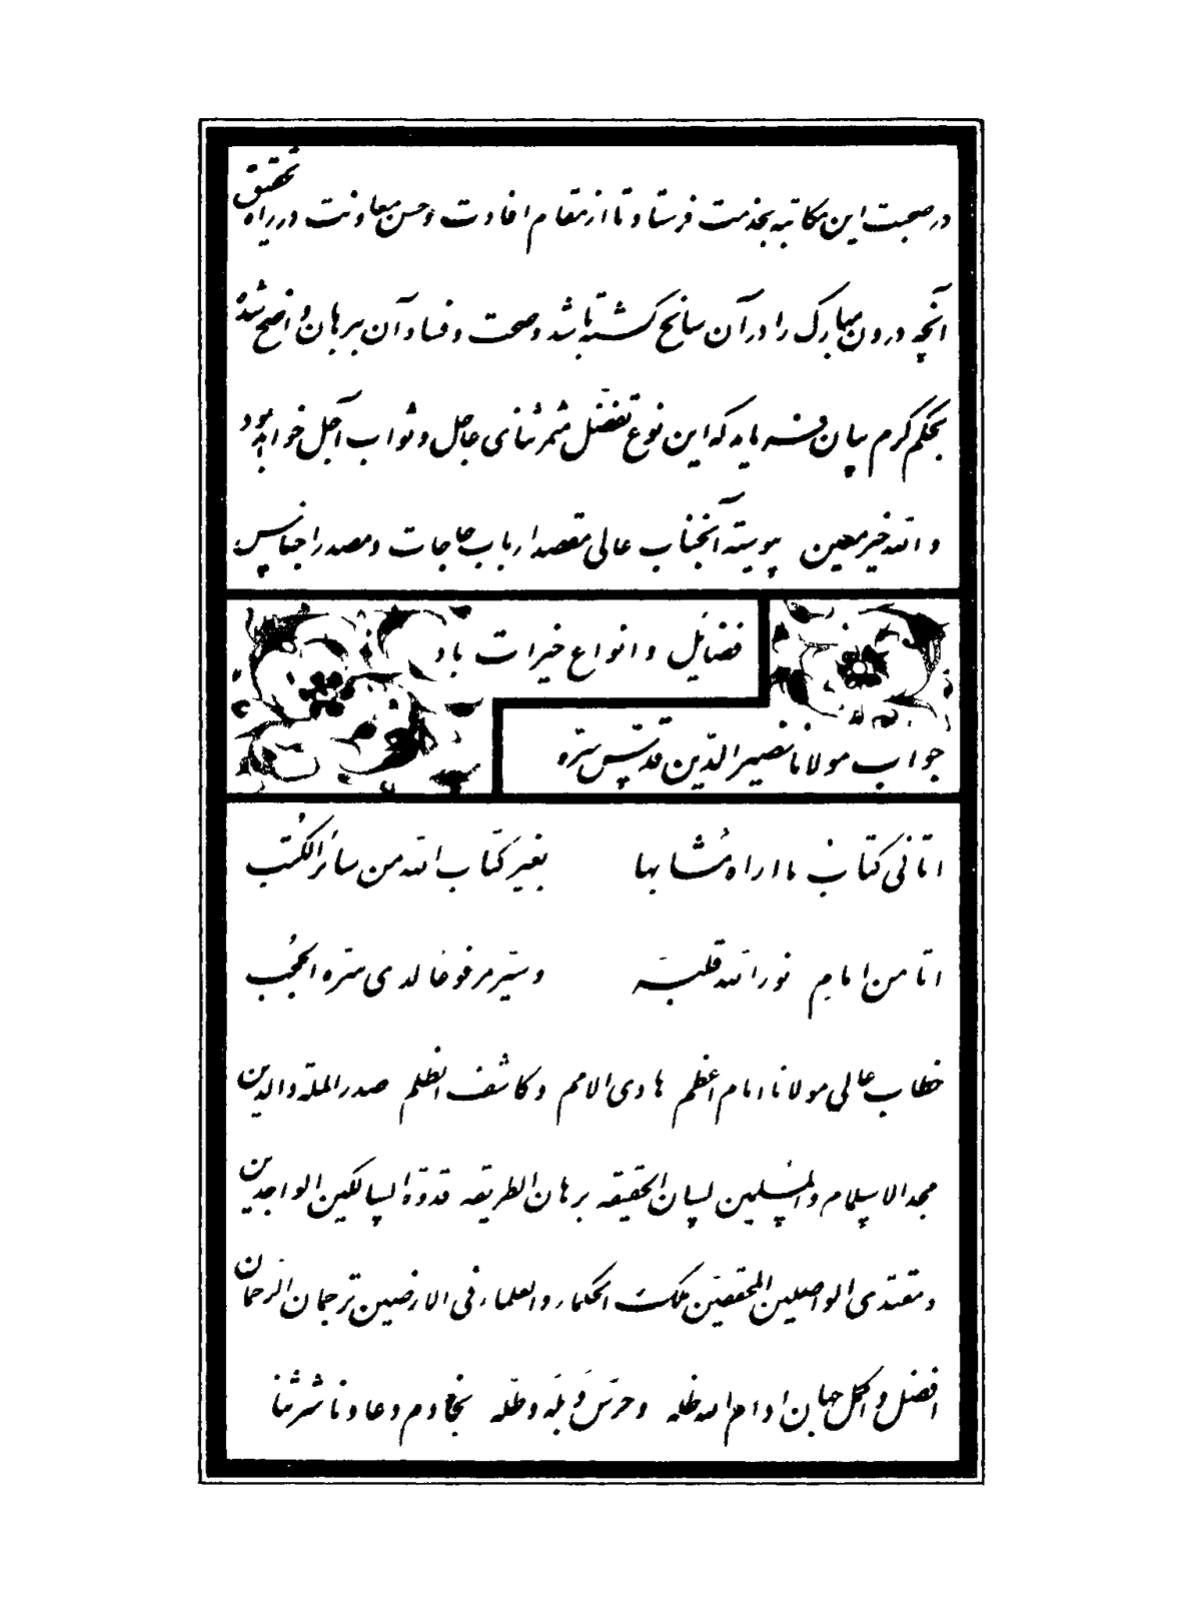 در صحبت این مکاتبه بخدمت فرستاد تا از مقام افادت و حسن معاونت در راه تحقیق
آنچه درون مبارک را در آن سانح گشته باشد و صحت و فساد آن ببرهان واضح شده
بحکم کرم بیان فرماید که این نوع تفضّل مثمر ثنای عاجل و ثواب آجل خواهد بود
والله خیر معین پیوسته آنجناب عالی مقصد ارباب حاجات و مصدر اجناس
فضایل و انواع خیرات باد
جواب مولانا نصیر الدّین قدّس سرّه
اتانی کتاب ما اراه مُشابها بغیر کتاب الله من سائر الکُتب
اتا من امام نور الله قلبه وسیّر مرفوعا لدی سرّه الحُجب
خطاب عالی مولانا امام اعظم هادی الامم و کاشف الظلم صدر الملة والدین
مجد الاسلام والمسلمین لسان الحقیقه برهان الطریقه قدوة السالکین الواجدین
و مقتدی الواصلین المحققین ملک الحکماء والعلماء فی الارضین ترجمان الرحمان
افضل و اکمل جهان ادام الله ظله وحرّس وبله وطلّه بخادم دعا و ناشر ثنا